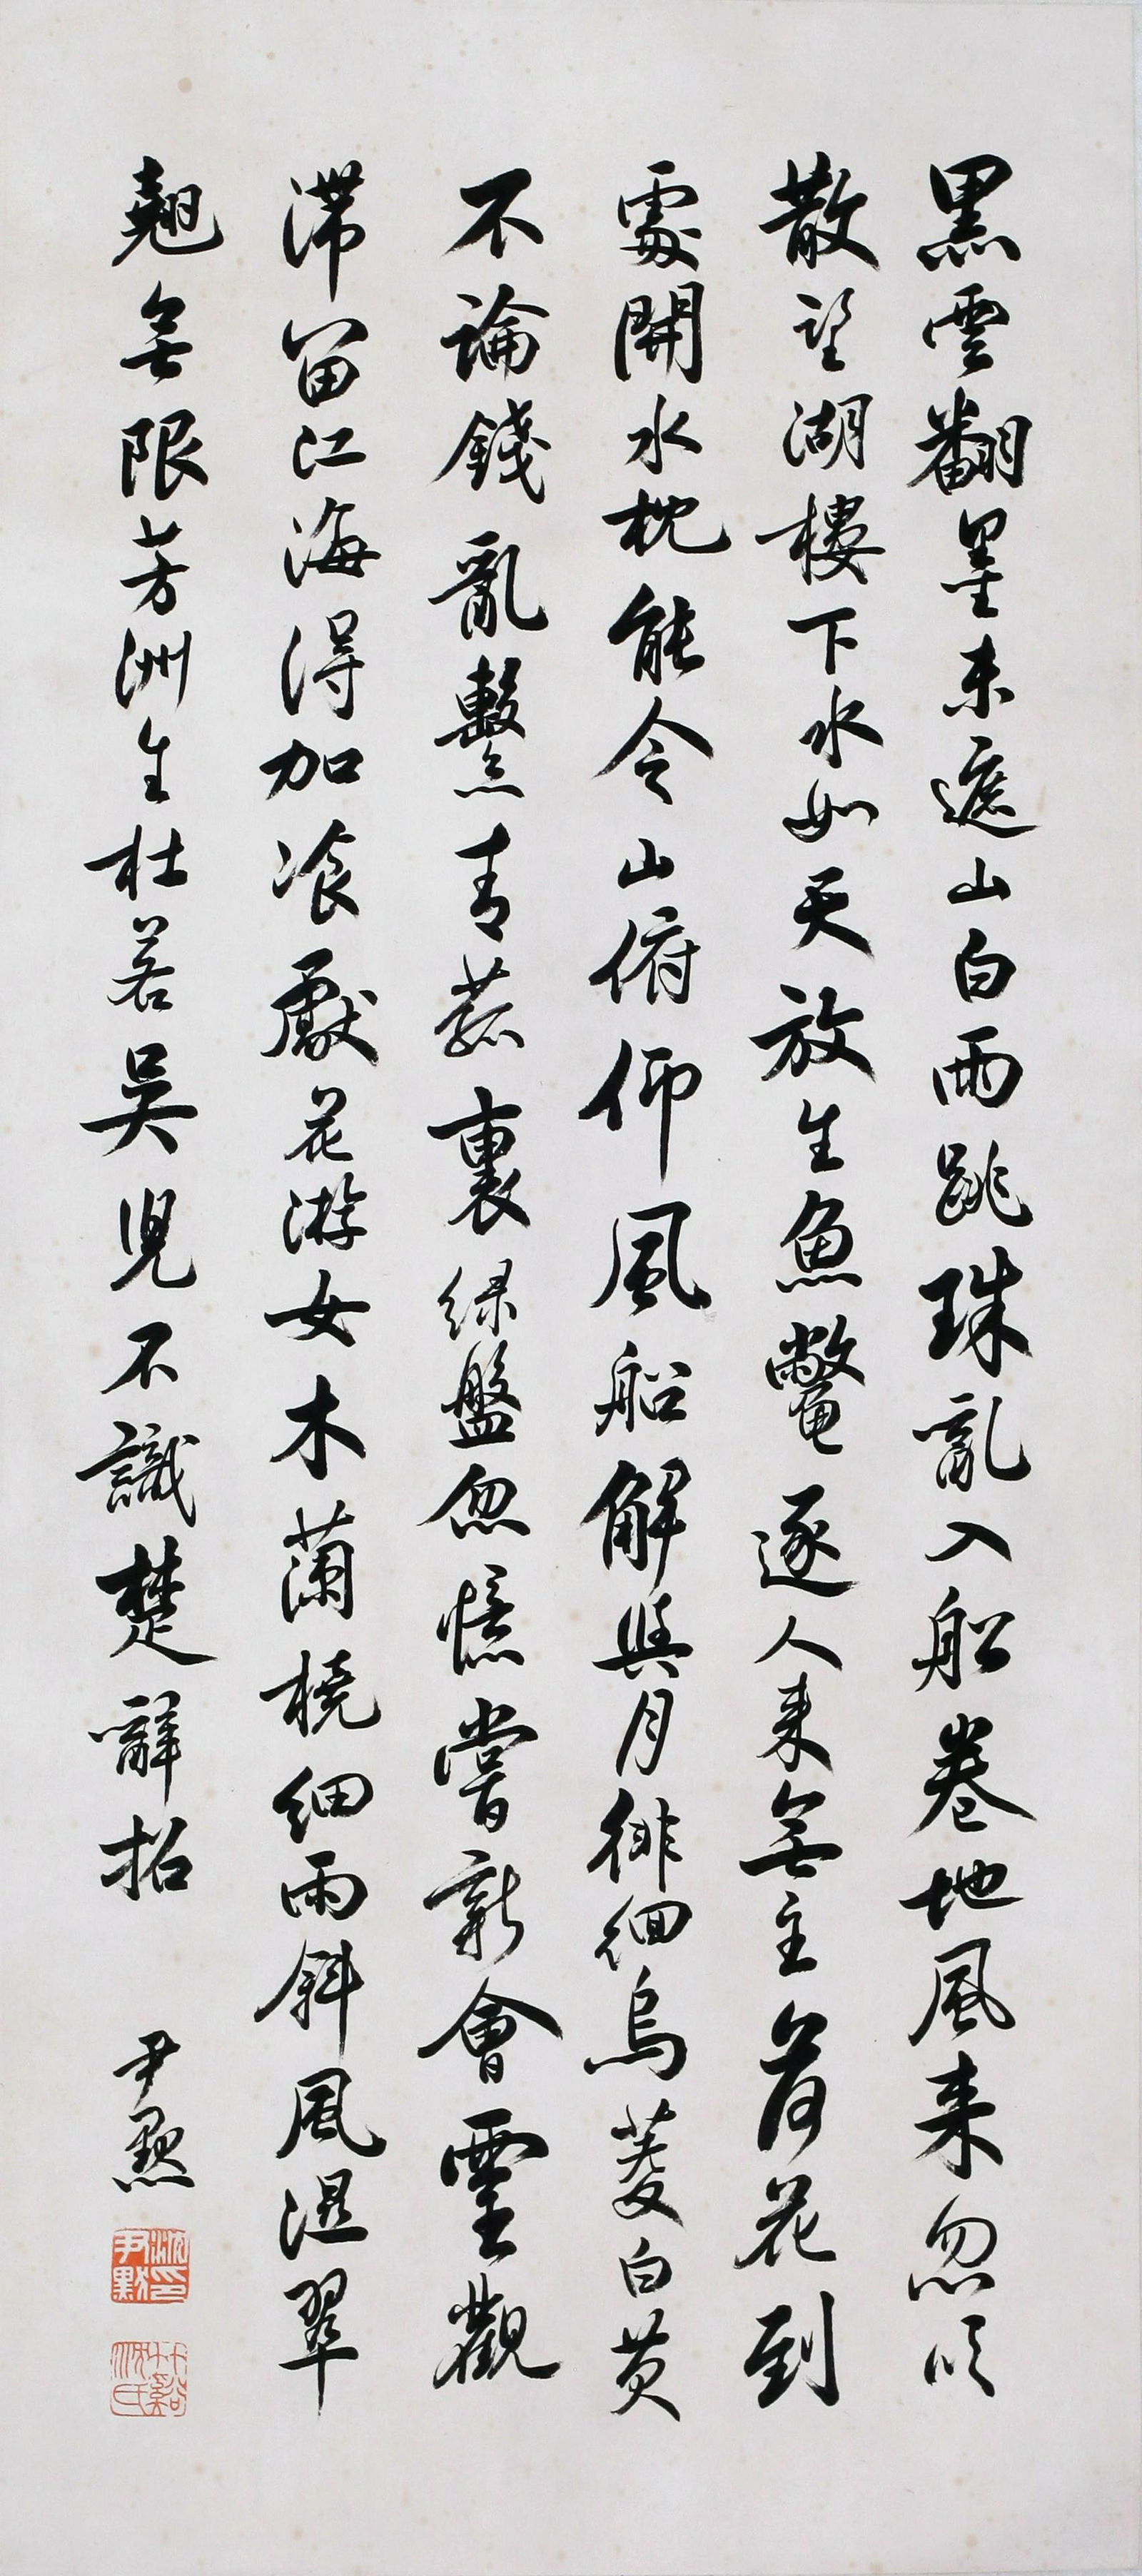 黑雲翻墨未遮山白雨跳珠亂入船卷地風来忽吹
散望湖樓下水如天放生魚鼈逐人来無主荷花到
處開水枕能令山俯仰風船解與月徘徊烏菱白芡
不論錢亂繫青菰裹緑盤忽憶嘗新會靈觀
滯留江海得加飡獻花游女木蘭橈細雨斜風濕翠
翹無限芳洲生杜若吳兒不識楚辭招
尹默
沈尹默印
竹谿沈氏